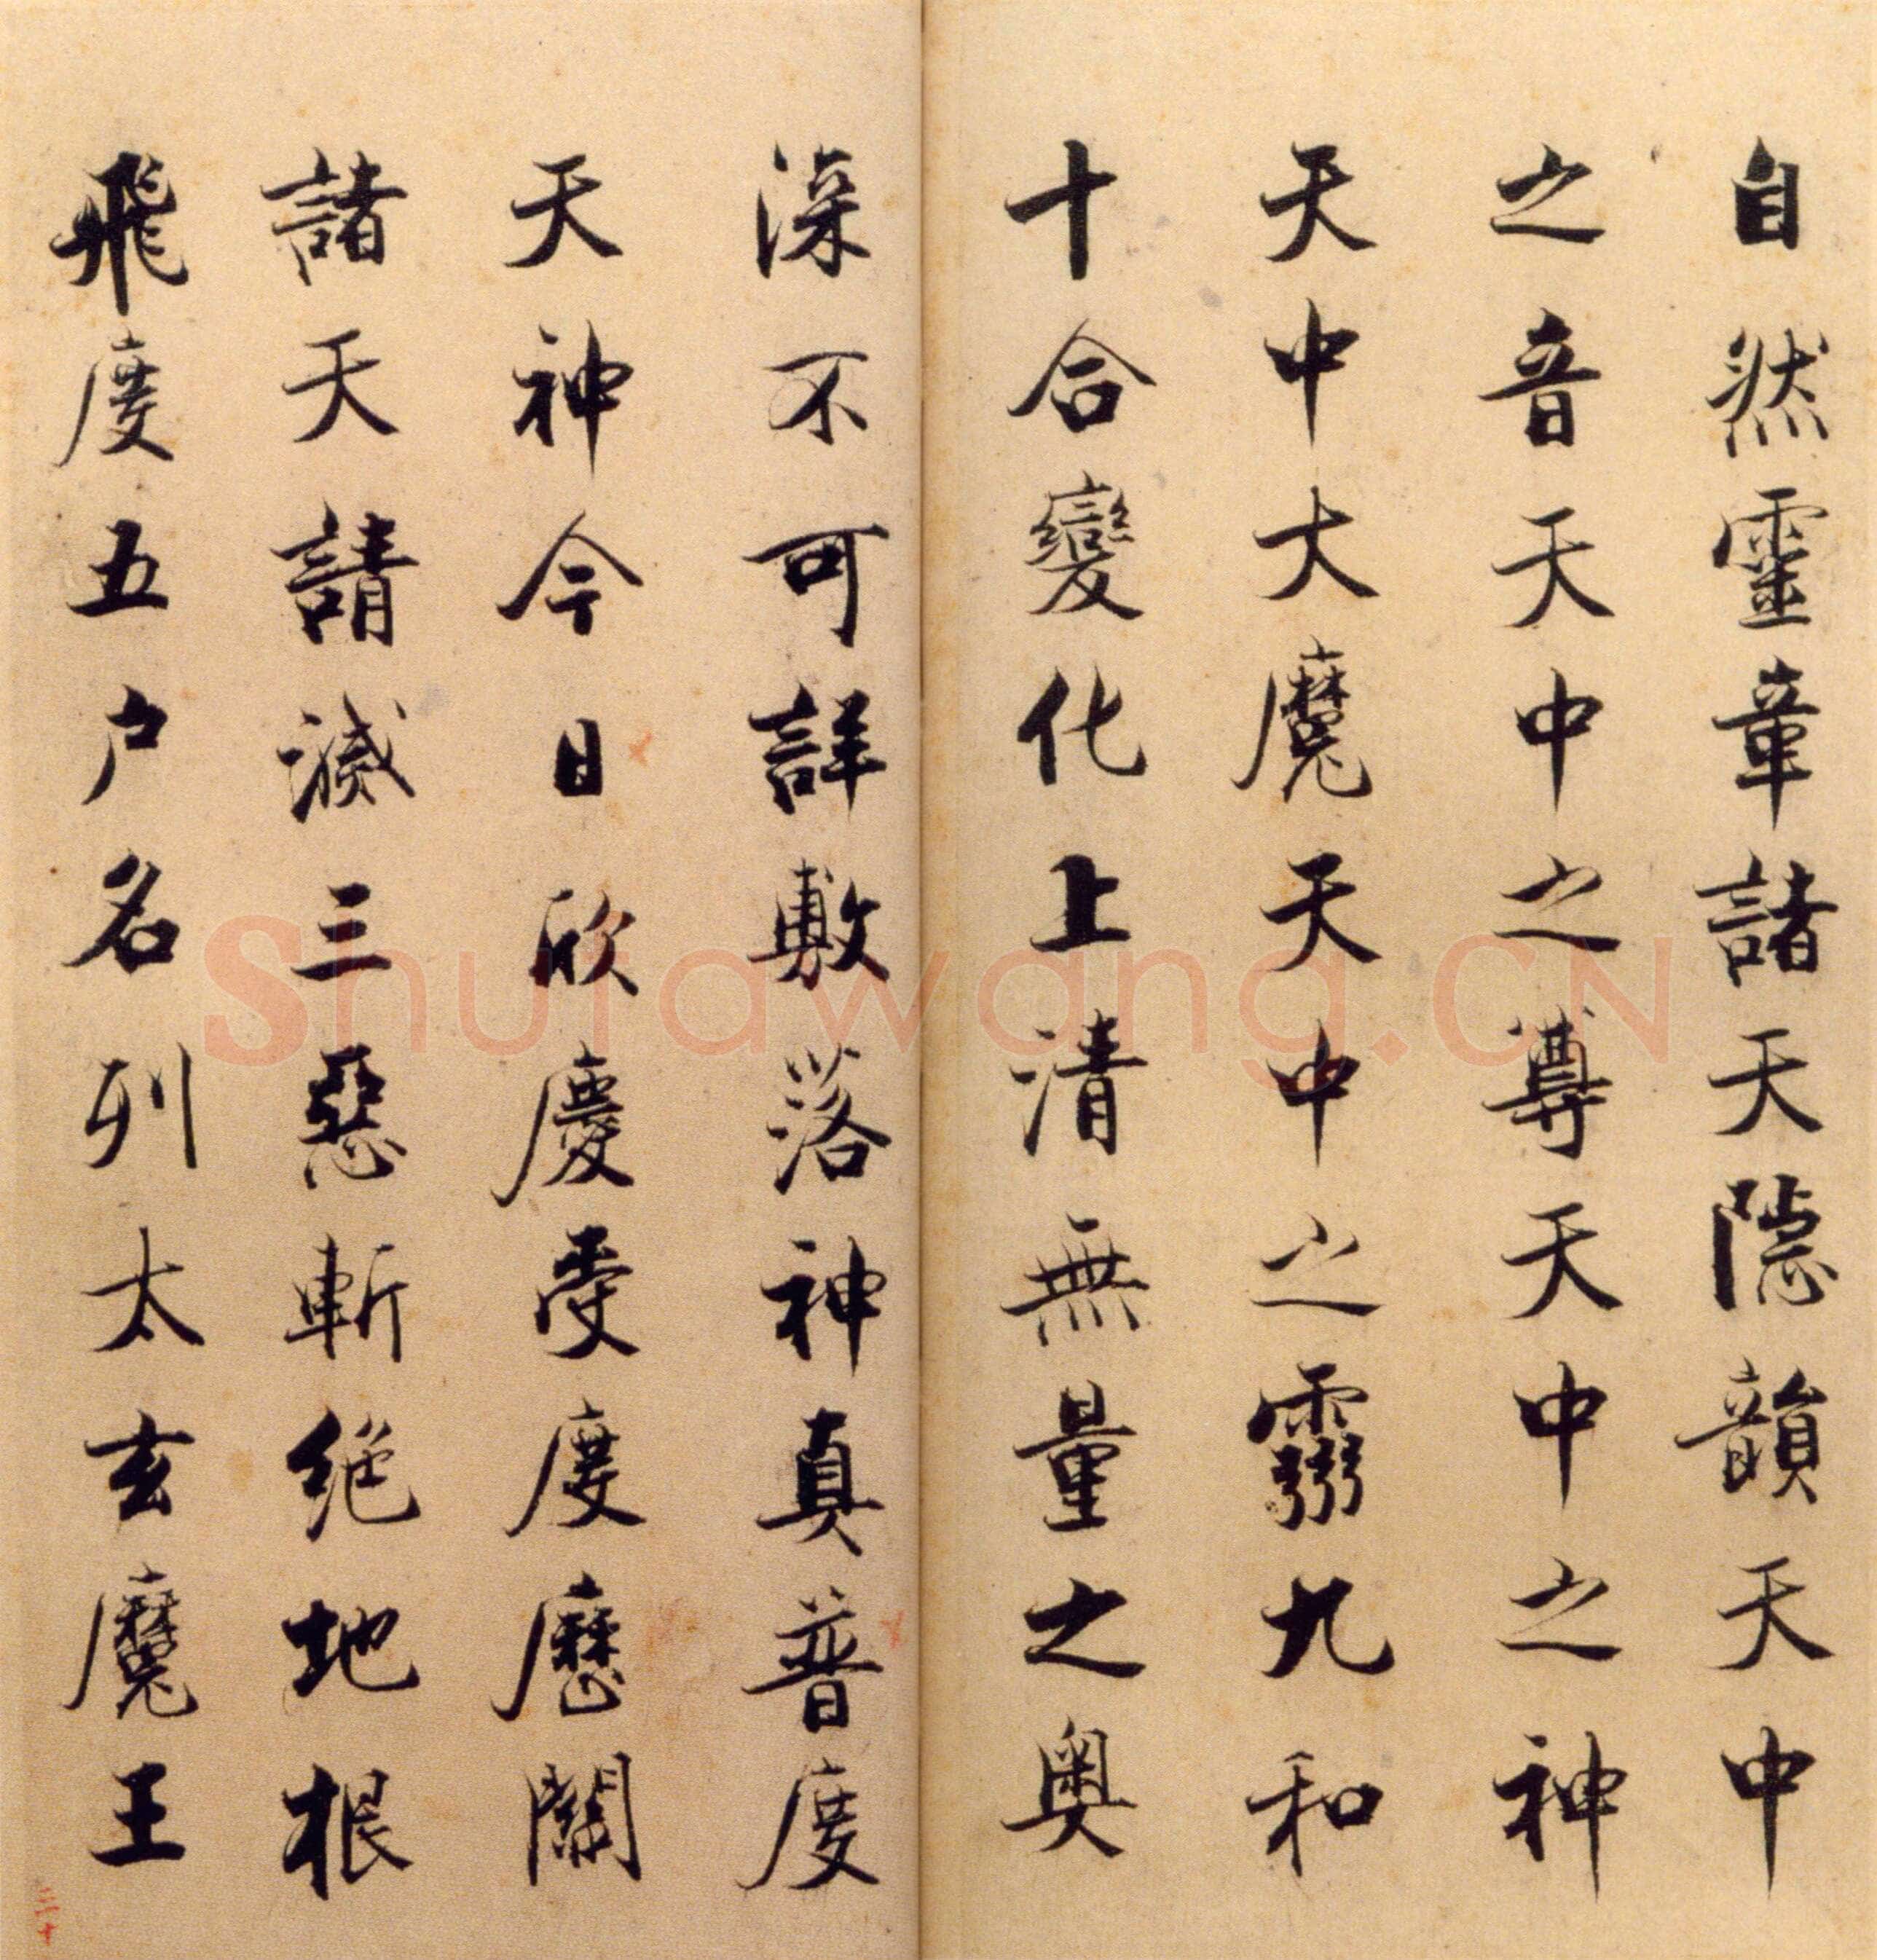 自然靈章諸天隱韻天中
之音天中之尊天中之神
天中大魔天中之靈九和
十合變化上清無量之奧
深不可詳敷落神真普度
天神今日欣慶受度歷關
諸天請滅三惡斬絕地根
飛度五户名列太玄魔王
二十
Shufawang.CN